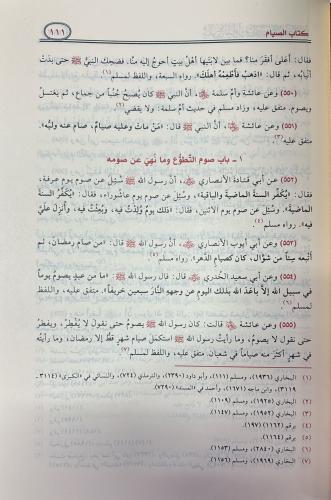 كتاب الصيام ١١١
فقال: أعلى أفقرَ منا؟ فما بين لابتيها أهلُ بيتٍ أحوجُ إليه منّا، فضحِك النبيُّ ﷺ حتى بدَتْ
أنيابُه، ثم قال: «اذهبْ فأطعِمْهُ أهلَك». رواه السبعة، واللفظ لمسلم(١).
(٥٥٠) وعن عائشةَ وأمّ سلمةَ، أنّ النبي ﷺ كان يُصبحُ جُنُباً من جماع، ثم يغتسلُ
ويصوم. متفق عليه، وزاد مسلم في حديث أمّ سلمة: ولا يقضي(٢).
(٥٥١) وعن عائشة، أنّ النبيَّ ﷺ قال: «مَنْ ماتَ وعليه صيامٌ، صام عنه وليُّه».
متفق عليه(٣).
١ - باب صوم التطوّع وما نُهيَ عن صومه
(٥٥٢) عن أبي قتادة الأنصاري، أنّ رسول الله ﷺ سُئِلَ عن صوم يوم عرفة،
فقال: «يُكفِّر السنةَ الماضيةَ والباقية»، وسُئِل عن صوم يوم عاشوراء، فقال: «يُكَفِّر السنةَ
الماضية»، وسُئِلَ عن صوم يوم الاثنين، فقال: «ذلك يومٌ وُلِدْتُ فيه، وبُعِثْتُ فيه، وأُنزِلَ عليَّ
فيه». رواه مسلم(٤).
(٥٥٣) وعن أبي أيوب الأنصاري، أنّ رسول الله ﷺ قال: «مَن صام رمضان، ثم
أتْبعه ستّاً من شوّال، كان كصيام الدهر». رواه مسلم(٥).
(٥٥٤) وعن أبي سعيد الخُدري قال: قال رسول الله ﷺ: «ما من عبدٍ يصومُ يوماً
في سبيل الله إلّا باعَدَ اللهُ بذلك اليومِ عن وجهِهِ النارَ سبعين خريفاً». متفق عليه، واللفظ
لمسلم(٦).
(٥٥٥) وعن عائشة قالت: كان رسول الله ﷺ يصومُ حتى نقول لا يُفْطِرُ، ويفطرُ
حتى نقول لا يصوم، وما رأيتُ رسول الله ﷺ استكملَ صيامَ شهرٍ قطُّ إلا رمضان، وما رأيته
في شهرٍ أكثرَ منه صياماً في شعبان. متفق عليه، واللفظ لمسلم(٧).
(١) البخاري (١٩٣٦)، ومسلم (١١١١)، وأبو داود (٢٣٩٠)، والترمذي (٧٢٤)، والنسائي في «الكبرى» (٣١١٤ -
٣١١٩)، وابن ماجه (١٦٧١)، وأحمد في «المسند» (٧٢٩٠).
(٢) البخاري (١٩٢٥)، ومسلم (١١٠٩).
(٣) البخاري (١٩٥٢)، ومسلم (١١٤٧).
(٤) برقم (١١٦٢) (١٩٧).
(٥) برقم (١١٦٤).
(٦) البخاري (٢٨٤٠)، ومسلم (١١٥٣).
(٧) البخاري (١٩٦٩)، ومسلم (١١٥٦).